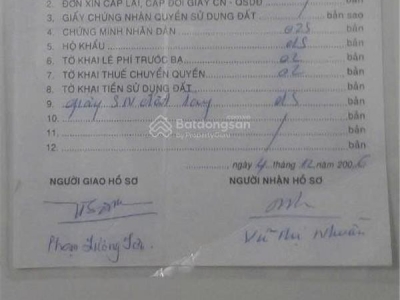 2. ĐƠN XIN CẤP LẠI, CẤP ĐỔI GIẤY CN - QSDĐ / bản
3. GIẤY CHỨNG NHẬN QUYỀN SỬ DỤNG ĐẤT / bản sao
4. CHỨNG MINH NHÂN DÂN 02S bản
5. HỘ KHẨU 02S bản
6. TỜ KHAI LỆ PHÍ TRƯỚC BẠ 02 bản
7. TỜ KHAI THUẾ CHUYỂN QUYỀN 02 bản
8. TỜ KHAI TIỀN SỬ DỤNG ĐẤT / bản
9. giấy bản
10. bản
11. bản
12. bản
Batdongsan
by PropertyGuru
ngày 4 tháng 12 năm 2006
NGƯỜI GIAO HỒ SƠ NGƯỜI NHẬN HỒ SƠ
Phạm Vũ Thị Nhuần